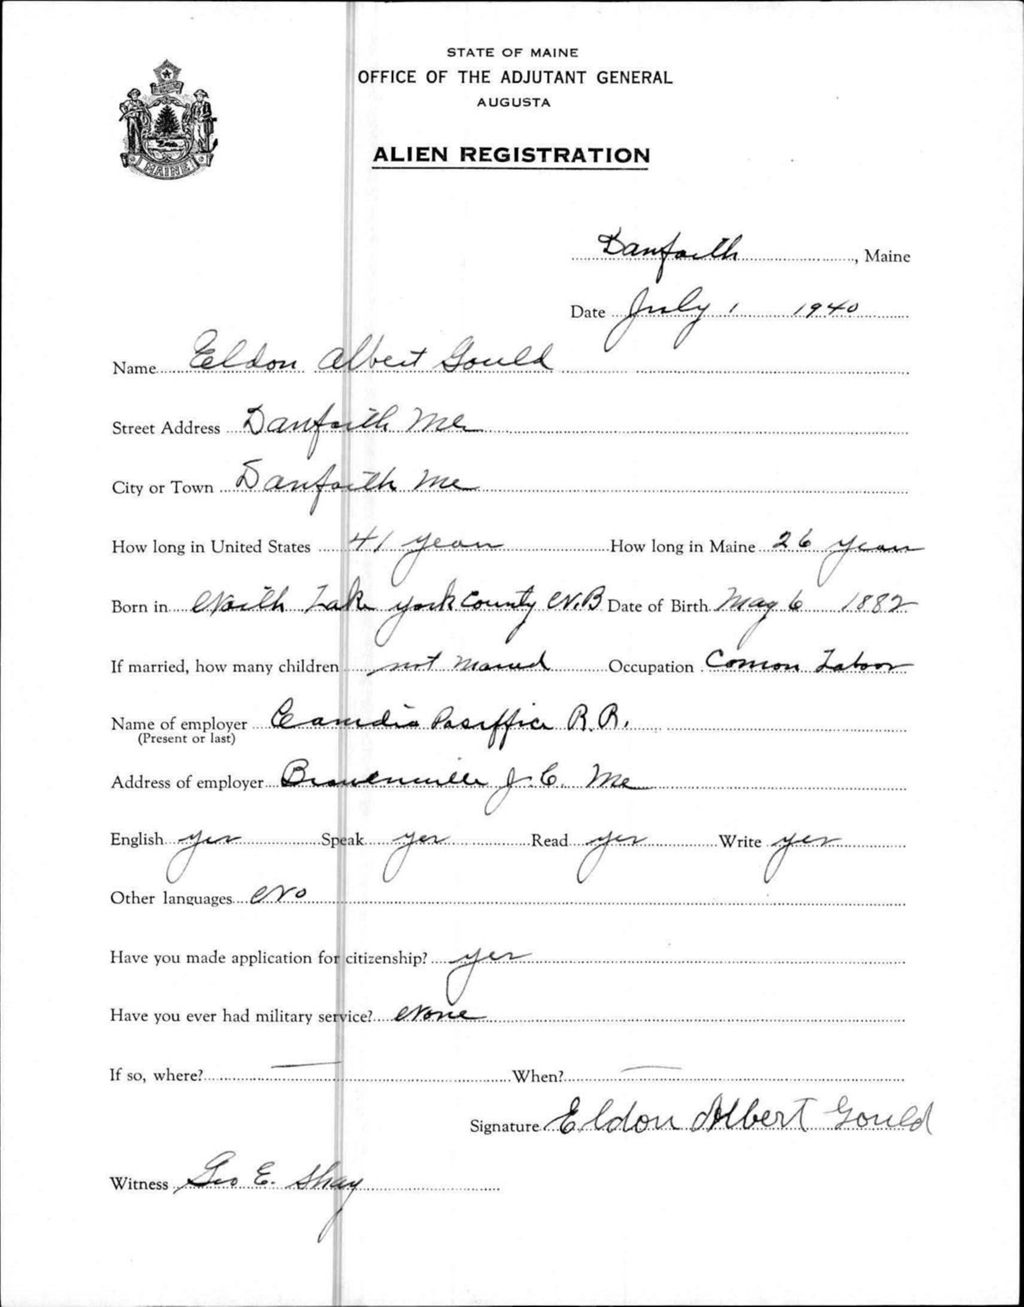 STATE OF MAINE
OFFICE OF THE ADJUTANT GENERAL
AUGUSTA
ALIEN REGISTRATION
MAINE
Danforth, Maine
Date July 1 1940
Name Eldon Albert Gould
Street Address Danforth Me
City or Town Danforth Me
How long in United States 41 years How long in Maine 26 years
Born in North Lake York County N.B Date of Birth May 6 1882
If married, how many children not Maried Occupation Comon Labor
Name of employer Canidia Pasiffice R.R.
(Present or last)
Address of employer J.C. Me
English yes Speak yes Read yes Write yes
Other languages No
Have you made application for citizenship? yes
Have you ever had military service? None
If so, where? — When? —
Signature Eldon Albert Gould
Witness Geo E. Shay